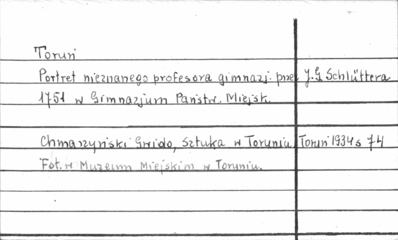 Toruń
Portret nieznanego profesora gimnazj. przez J. G Schlüttera
1751 w Gimnazjum Państw. Miejsk.
Chmarzyński Gwido, Sztuka w Toruniu Toruń 1934 s 74
Fot. w Muzeum Miejskim w Toruniu.